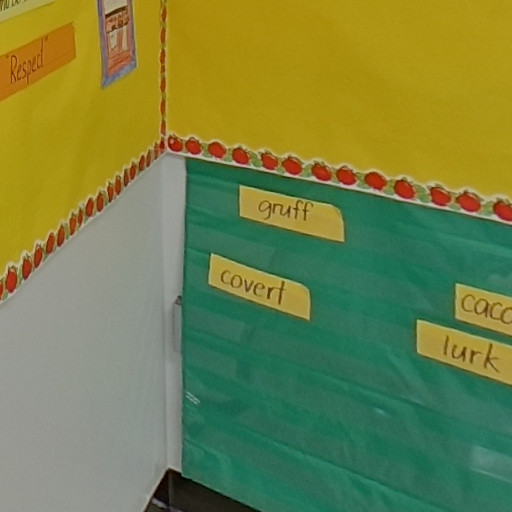 "Respect"
gruff
covert
lurk